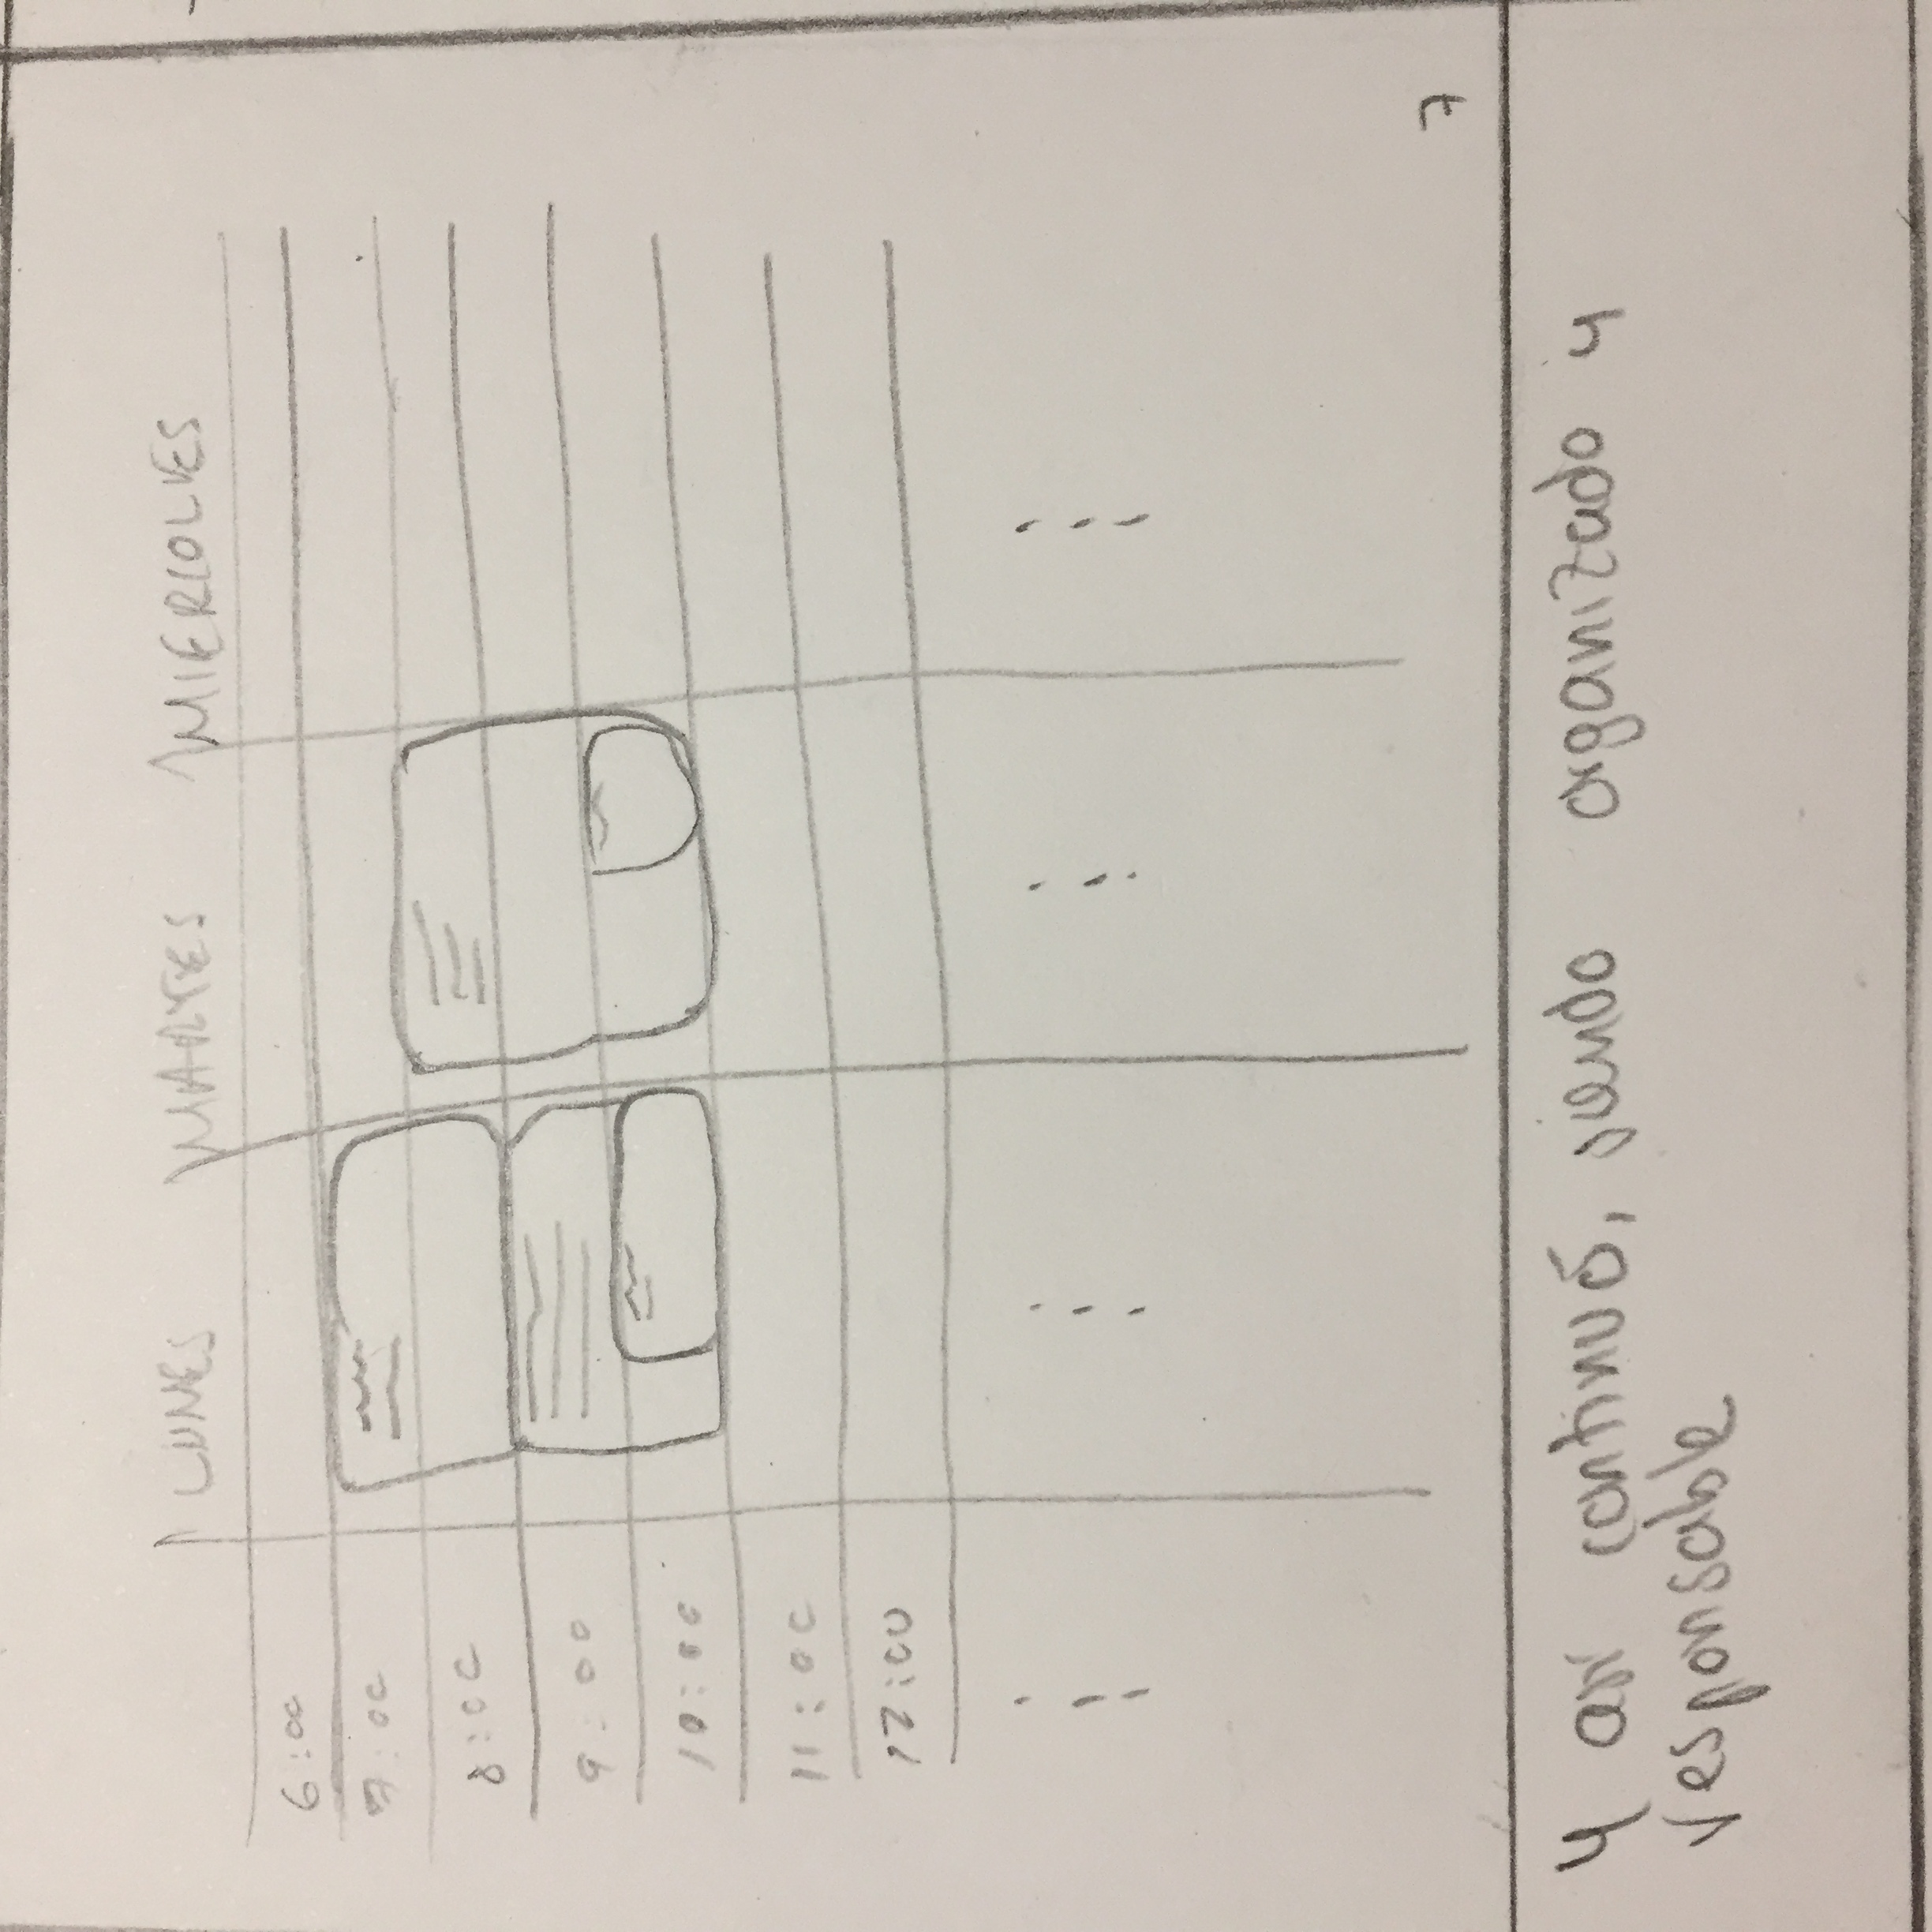 LUNES MARTES MIERCOLES
6:00
7:00
8:00
9:00
10:00
11:00
12:00
7
Y así continuó, siendo organizado y
responsable